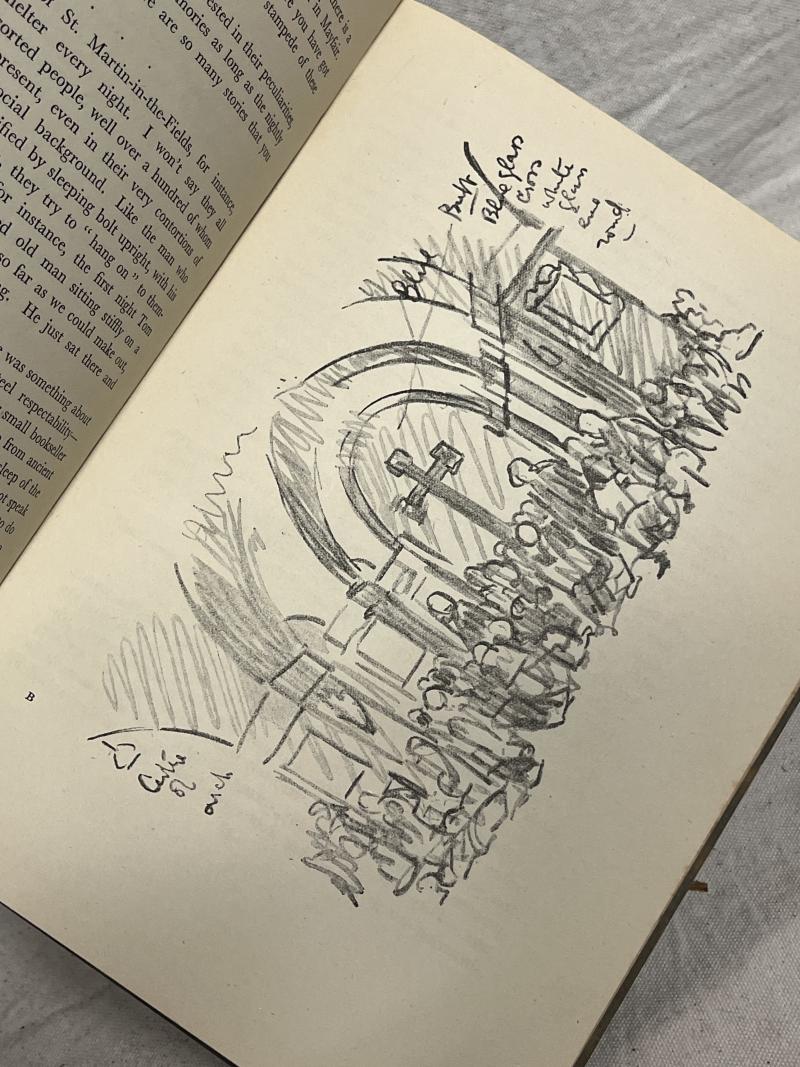 here is a
in Mayfair.
re you have got
stampede of these
ested in their peculiarities,
nories as long as the nightly
e are so many stories that you
of St. Martin-in-the-Fields, for instance,
helter every night. I won't say they all
orted people, well over a hundred of whom
present, even in their very contortions of
ocial background. Like the man who
ified by sleeping bolt upright, with his
they try to "hang on" to them-
for instance, the first night Tom
d old man sitting stiffly on a
so far as we could make out,
g. He just sat there and
e was something about
eel respectability—
small bookseller
from ancient
sleep of the
ot speak
to do
B
Buff
Blue glass
cross
white
glass
end
round
Blue
Centre
of
arch